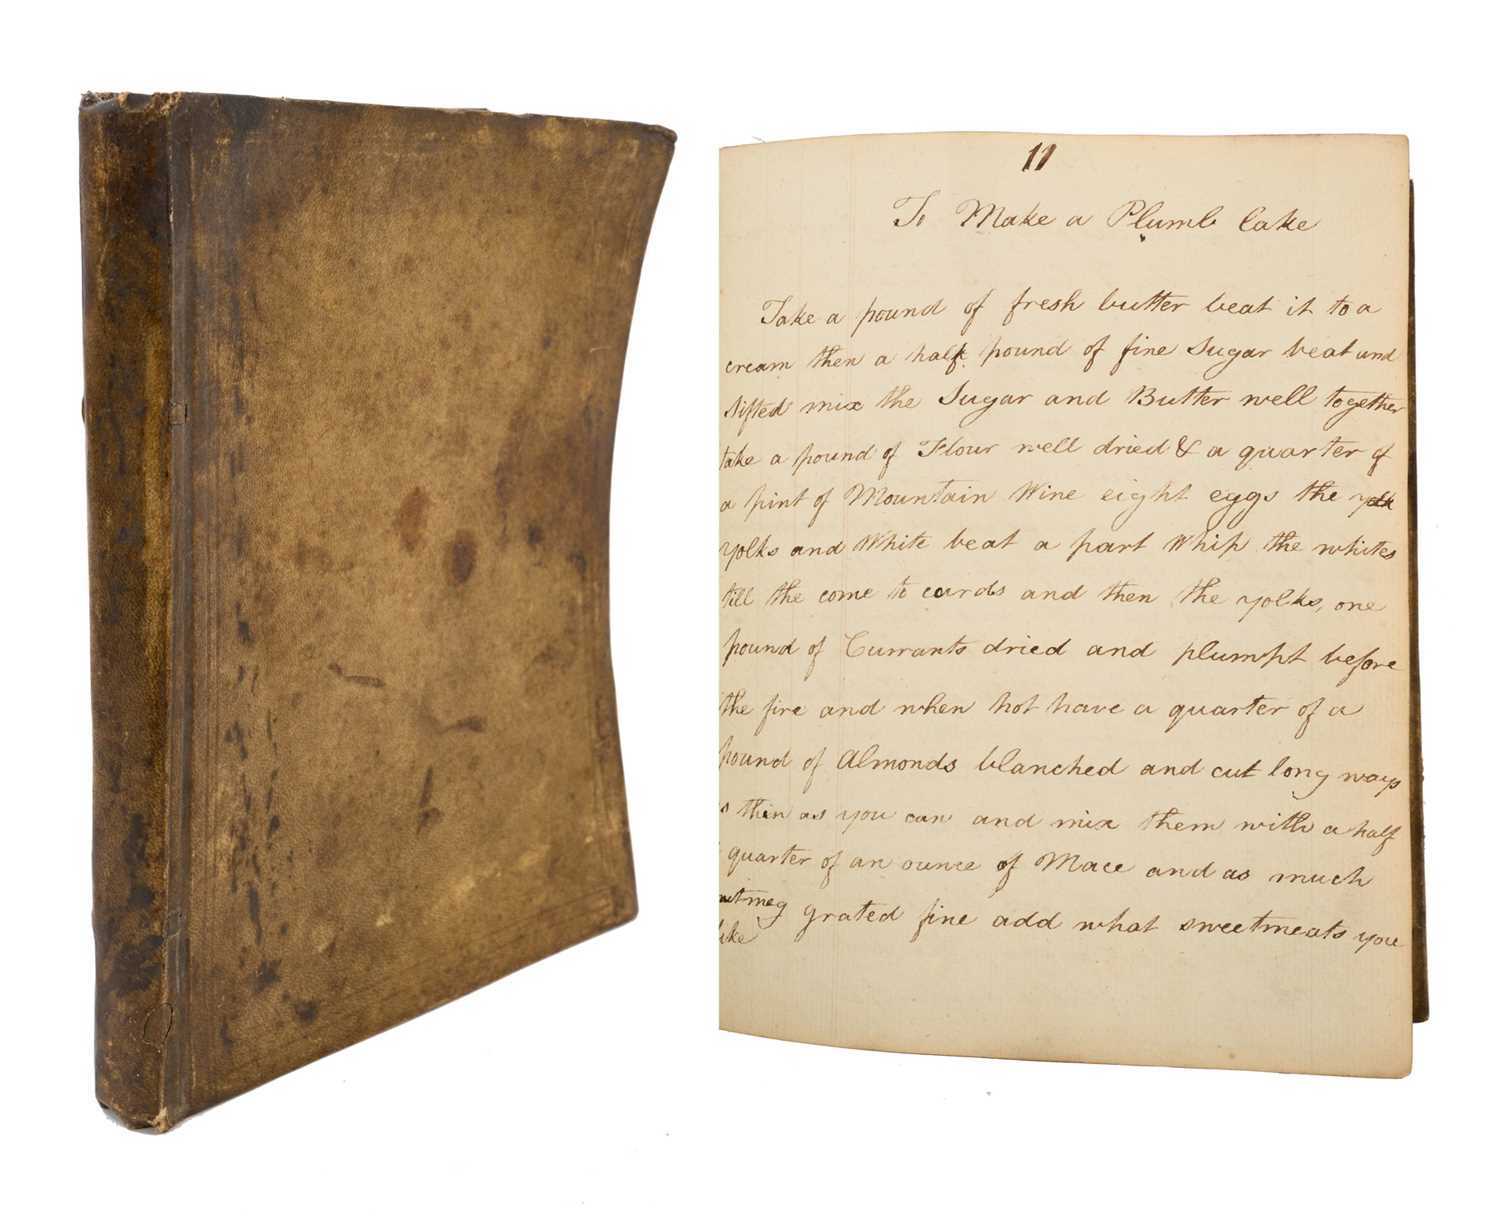 11
To Make a Plumb Cake
Take a pound of fresh butter beat it to a
cream then a half pound of fine Sugar beat and
sifted mix the Sugar and Butter well together
take a pound of Flour well dried & a quarter of
a pint of Mountain Wine eight eggs the
yolks and White beat a part Whip the whites
till the come to curds and then the yolks, one
pound of Currants dried and plumpt before
the fire and when hot have a quarter of a
pound of Almonds blanched and cut long ways
s thin as you can and mix them with a half
quarter of an ounce of Mace and as much
nutmeg grated fine add what sweetmeats you
like